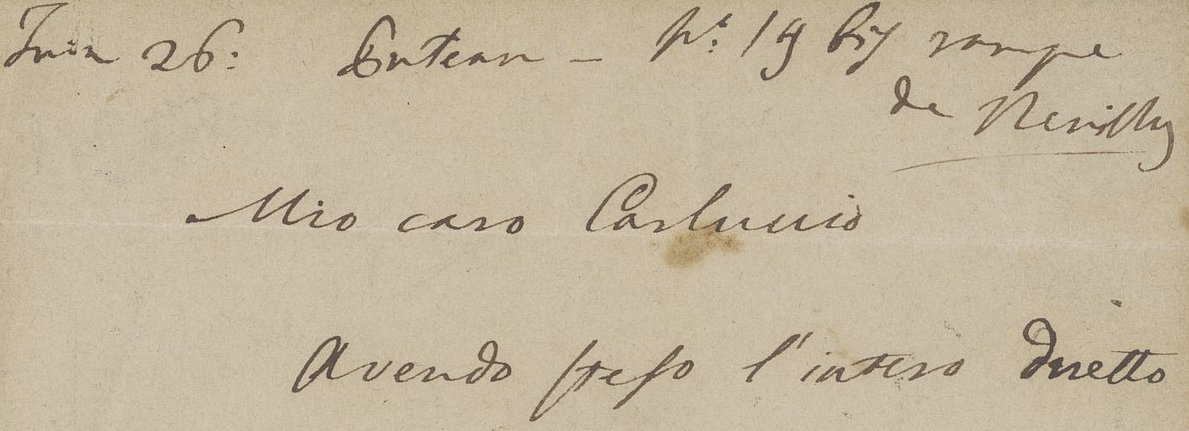 Juin 26: Puteaux – N.º 19 bis rampe
de Neuilly
Mio caro Carluccio
Avendo l'intero duetto